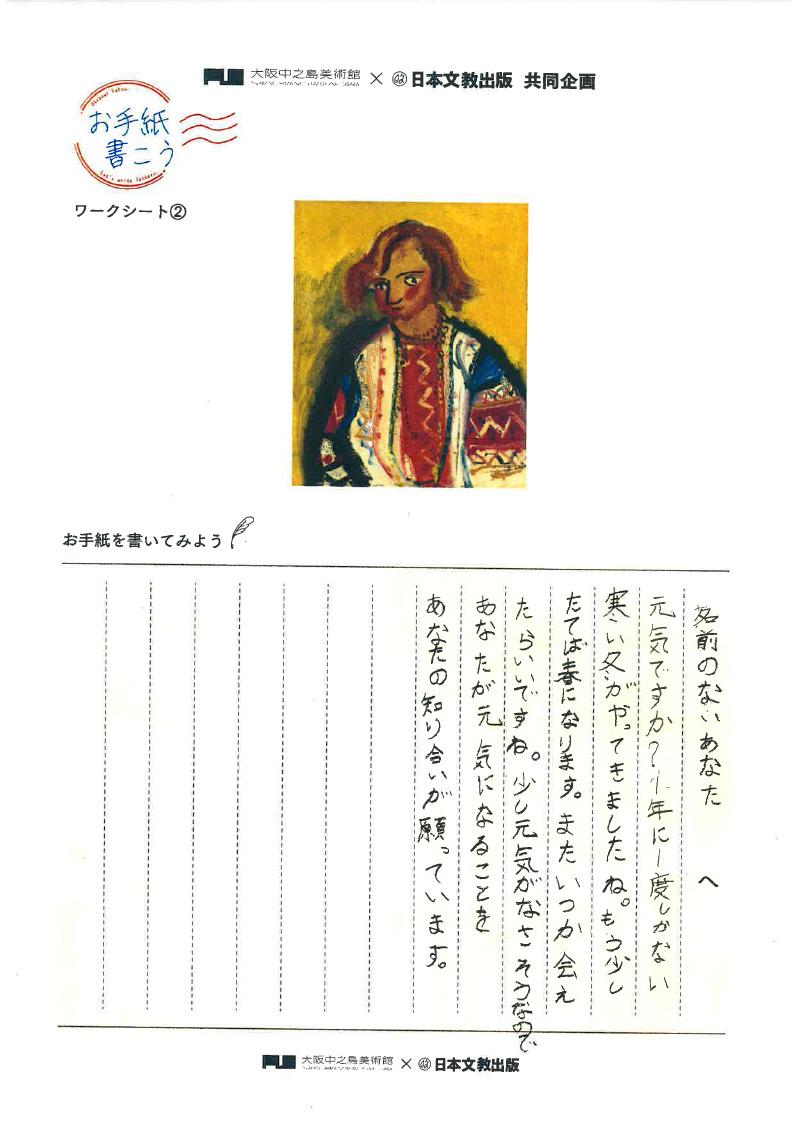 大阪中之島美術館 × 日本文教出版 共同企画
お手紙
書こう
Let's write letters.
ワークシート②
お手紙を書いてみよう
名前のないあなた へ
元気ですか？1年に1度しかない
寒い冬がやってきましたね。もう少し
たてば春になります。またいつか会え
たらいいですね。少し元気がなさそうなので
あなたが元気になることを
あなたの知り合いが願っています。
大阪中之島美術館 × 日本文教出版